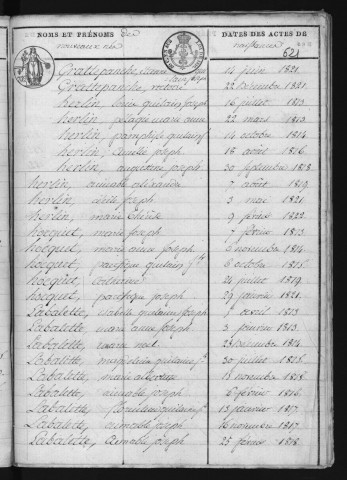 NOMS ET PRÉNOMS des
nouveaux nés
DATES DES ACTES DE
naissances
62
Grattepanche, 14 juin 1821.
Grattepanche, 22 décembre 1821.
herlin, Louis quintain joseph 16 juillet 1813
herlin, pelagie marie anne 22 mars 1813
herlin, pamphile 14 octobre 1814
herlin, camille joseph 18 août 1816.
herlin, augustine joseph 30 septembre 1818
herlin, aimable alexandre 7 août 1819
herlin, cecile joseph 3 mai 1821
herlin, marie thérèse 9 février 1822.
hocquet, marie joseph 7 février 1813
hocquet, marie anne joseph 6 novembre 1814.
hocquet, quintain jh 6 octobre 1815.
hocquet, 24 juillet 1819.
hocquet, joseph 29 janvier 1821.
Labalette, isabelle joseph avril 1813
Labalette, marie anne joseph 3 janvier 1813.
Labalette, noel 25 décembre 1814
Labalette, quintain jh 30 juillet 1815.
Labalette, marie 13 novembre 1815
Labalette, aimable joseph 6 février 1816.
Labalette, quintain jh 13 janvier 1817.
Labalette, aimable joseph 16 novembre 1817.
Labalette, aimable joseph 25 février 1818.